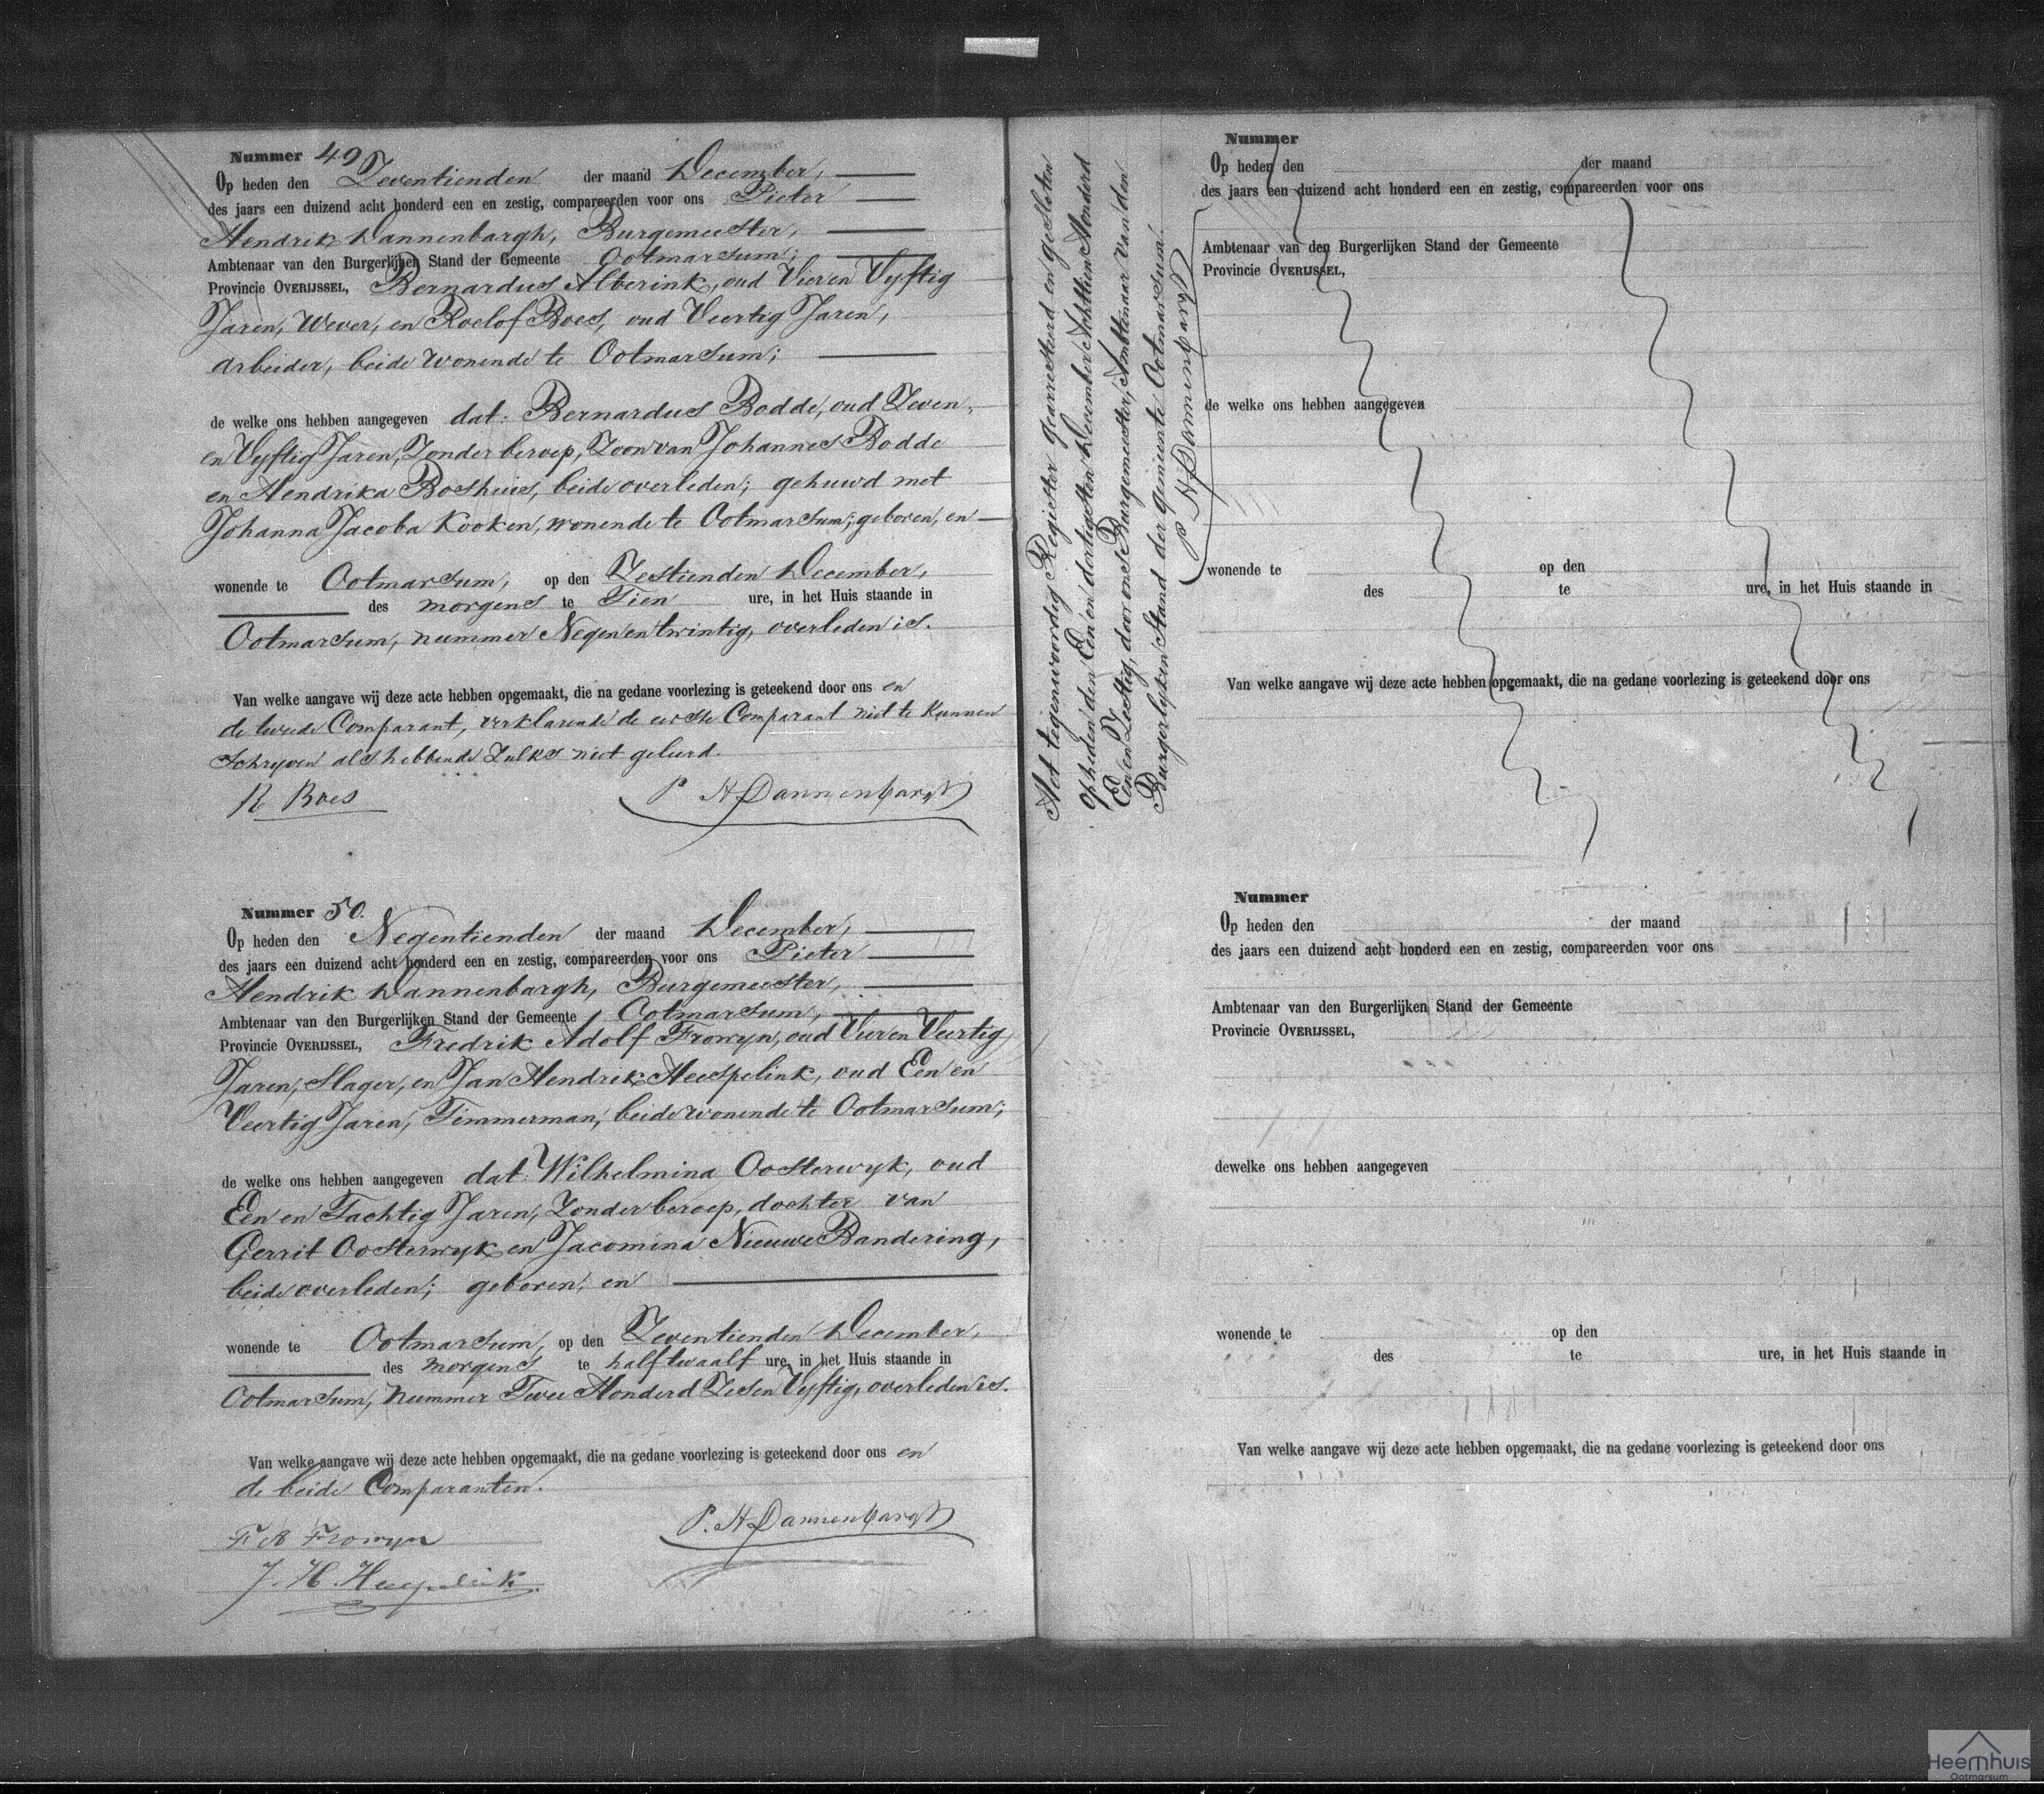 Nummer 49
Op heden den Zeventienden der maand December,
des jaars een duizend acht honderd een en zestig, compareerden voor ons Pieter
Hendrik Dannenbargh, Burgemeester,
Ambtenaar van den Burgerlijken Stand der Gemeente Ootmarsum,
Provincie OVERIJSSEL, Bernardus Alberink, oud Vier en Vyftig
Jaren, Wever, en Roelof Boes, oud Veertig Jaren,
arbeider, beide wonende te Ootmarsum;
de welke ons hebben aangegeven dat Bernardus Bodde, oud Zeven
en Vyftig Jaren, Zonder beroep, Zoon van Johannes Bodde
en Hendrika Boshuis, beide overleden; gehuwd met
Johanna Jacoba Kooken, wonende te Ootmarsum; geboren, en
wonende te Ootmarsum, op den Zestienden December,
des morgens te Tien ure, in het Huis staande in
Ootmarsum, nummer Negen en twintig, overleden is.
Van welke aangave wij deze acte hebben opgemaakt, die na gedane voorlezing is geteekend door ons en
de tweede Comparant, verklarende de eerste Comparant niet te kunnen
Schryven als hebbende Zulks niet geleerd.
R Boes P H Dannenbargh
Nummer 50.
Op heden den Negentienden der maand December,
des jaars een duizend acht honderd een en zestig, compareerden voor ons Pieter
Hendrik Dannenbargh, Burgemeester,
Ambtenaar van den Burgerlijken Stand der Gemeente Ootmarsum,
Provincie OVERIJSSEL, Fredrik Adolf Frowyn, oud Vier en Veertig
Jaren, Slager, en Jan Hendrik Heespelink, oud Een en
Veertig Jaren, Timmerman, beide wonende te Ootmarsum;
de welke ons hebben aangegeven dat Wilhelmina Oosterwyk, oud
Een en Tachtig Jaren, Zonder beroep, dochter van
Gerrit Oosterwyk en Jacomina Nieuwe Bandering,
beide overleden; geboren, en
wonende te Ootmarsum, op den Zeventienden December,
des morgens te half twaalf ure, in het Huis staande in
Ootmarsum, nummer Twee Honderd Zes en Vyftig, overleden is.
Van welke aangave wij deze acte hebben opgemaakt, die na gedane voorlezing is geteekend door ons en
de beide Comparanten.
F A Frowyn P. H Dannenbargh
J. H. Heespelink.
Het tegenwoordig Register gearresteerd en gesloten
op heden den Een en dertigsten December Achttien Honderd
Een en Zestig, door ons Burgemeester, Ambtenaar van den
Burgerlyken Stand der gemeente Ootmarsum.
P H Dannenbargh
Nummer
Op heden den der maand
des jaars een duizend acht honderd een en zestig, compareerden voor ons
Ambtenaar van den Burgerlijken Stand der Gemeente
Provincie OVERIJSSEL,
de welke ons hebben aangegeven
wonende te op den
des te ure, in het Huis staande in
Van welke aangave wij deze acte hebben opgemaakt, die na gedane voorlezing is geteekend door ons
Nummer
Op heden den der maand
des jaars een duizend acht honderd een en zestig, compareerden voor ons
Ambtenaar van den Burgerlijken Stand der Gemeente
Provincie OVERIJSSEL,
dewelke ons hebben aangegeven
wonende te op den
des te ure, in het Huis staande in
Van welke aangave wij deze acte hebben opgemaakt, die na gedane voorlezing is geteekend door ons
Heemhuis
Ootmarsum